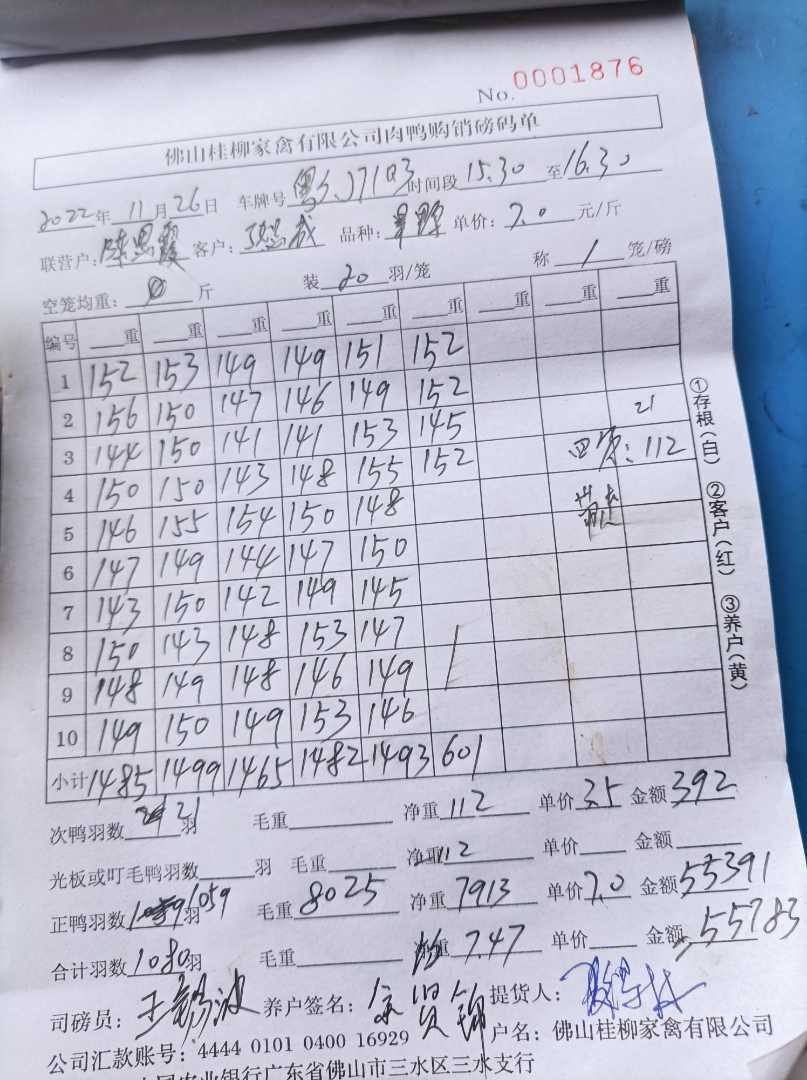 No. 0001876
佛山桂柳家禽有限公司肉鸭购销磅码单
2022年 11月 26日 车牌号 时间段 15.30 至 16.30
联营户: 陈恩霞 客户: 品种: 单价: 7.0 元/斤
空笼均重: 0 斤 装 20 羽/笼 称 1 笼/磅
编号 重 重 重 重 重 重 重 重 重
1 152 153 149 149 151 152
2 156 150 147 146 149 152 21
3 144 150 141 141 153 145 112
4 150 150 143 148 155 152
5 146 155 154 150 148
6 147 149 144 147 150
7 143 150 142 149 145
8 150 143 148 153 147
9 148 149 148 146 149
10 149 150 149 153 146
小计 1485 1499 1465 1482 1493 601
①存根(白) ②客户(红) ③养户(黄)
次鸭羽数 21 羽 毛重 净重 112 单价 3.5 金额 392
光板或叮毛鸭羽数 羽 毛重 净重 112 单价 金额
正鸭羽数 1059 羽 毛重 8025 净重 7913 单价 7.0 金额 55391
合计羽数 1080 羽 毛重 重 7.47 单价 金额 55783
司磅员: 养户签名: 提货人:
公司汇款账号: 4444 0101 0400 16929 户名: 佛山桂柳家禽有限公司
农业银行广东省佛山市三水区三水支行